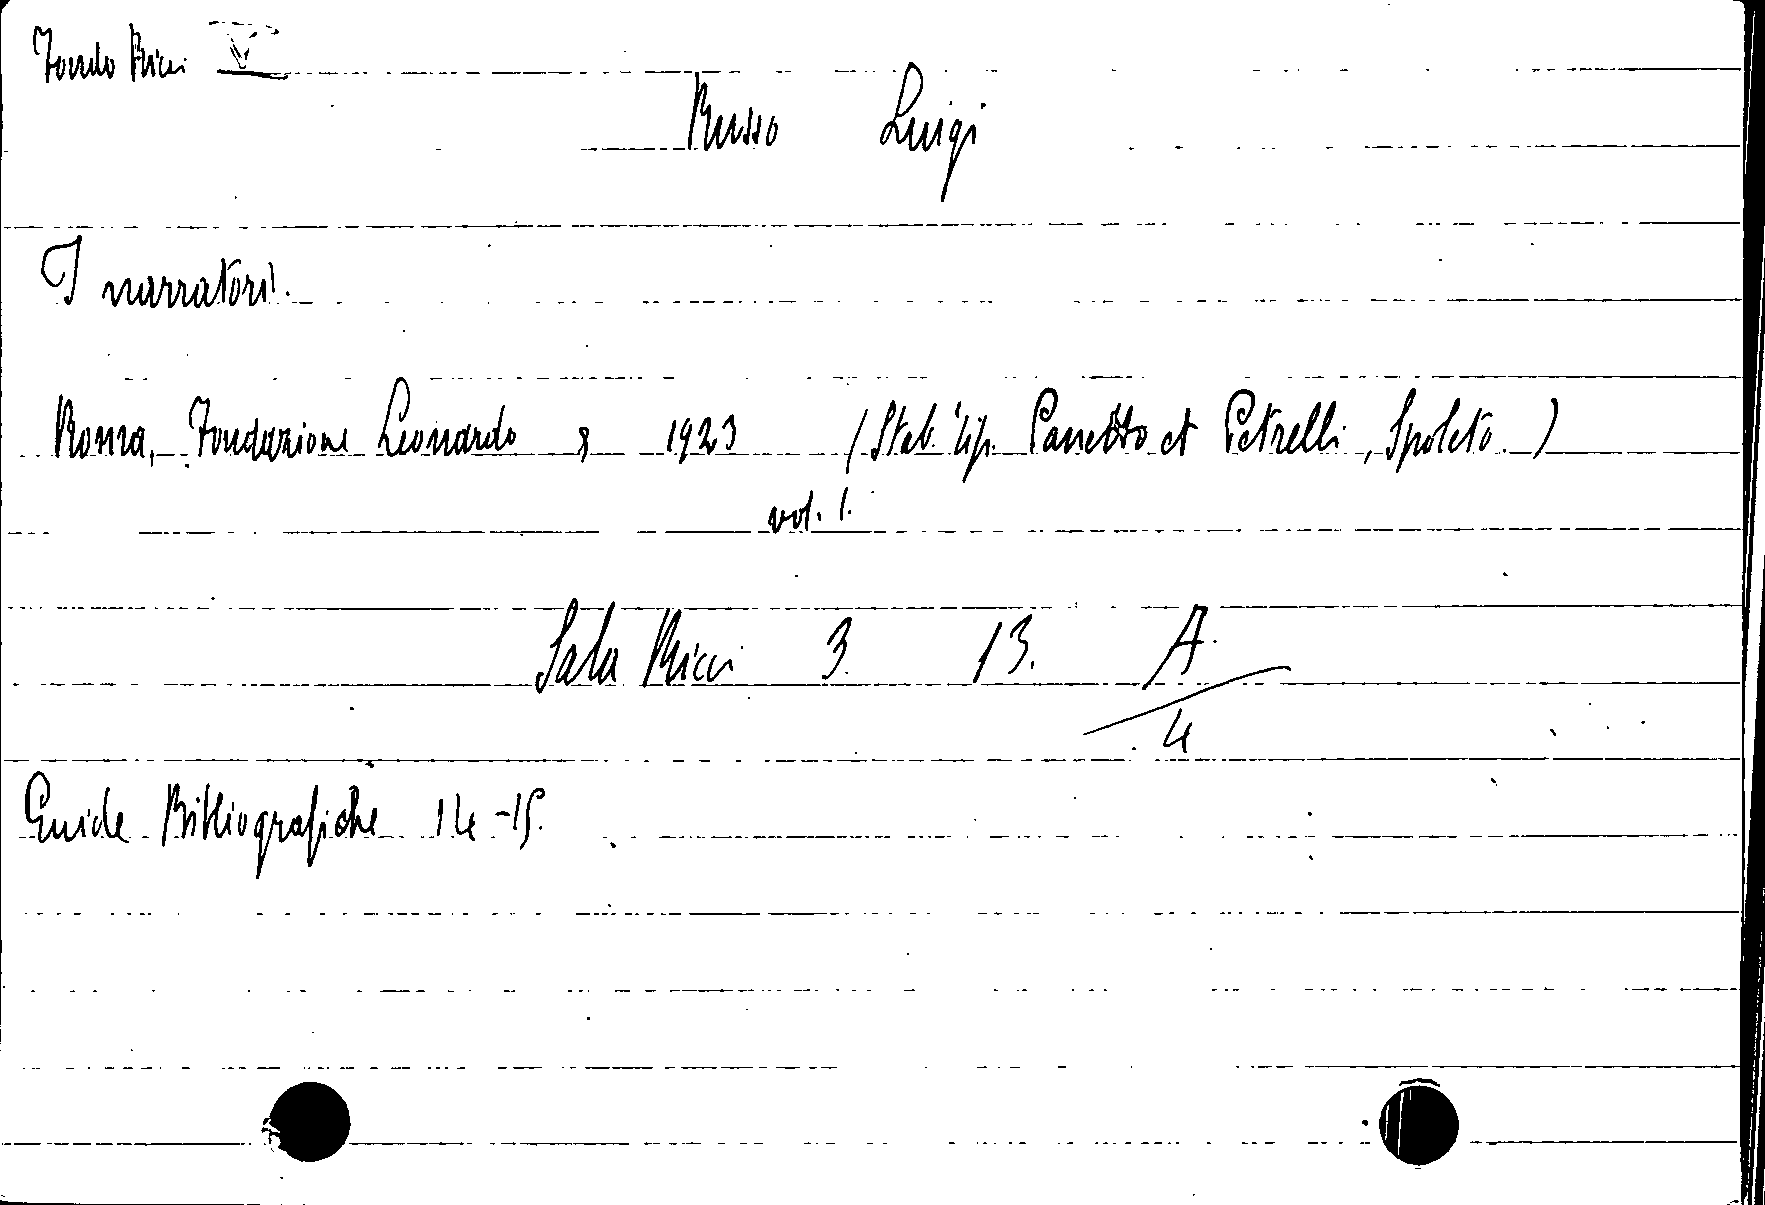 Fondo Ricci V
Russo Luigi
I narratori.
Roma, Fondazione Leonardo 8 1923 (Stab. tip. Panetto et Petrelli, Spoleto.)
vol. 1.
Sala Ricci 3 13. A.
4
Guide Bibliografiche 14-15.